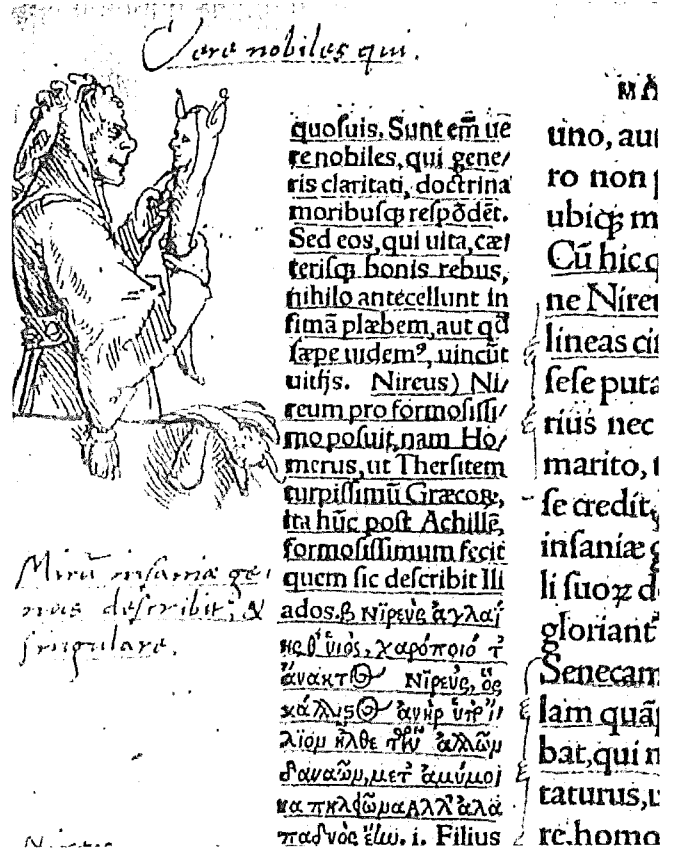 Vere nobiles qui.
MA
quoſuis. Sunt em̄ ue
re nobiles, qui gene/
ris claritati, doctrina
moribuſqꝫ reſpōdēt.
Sed eos, qui uita, cæ/
teriſqꝫ bonis rebus,
nihilo antecellunt in
fimā plæbem, aut qd
ſæpe iidemꝰ, uincūt
uitijs. Nireus) Ni/
reum pro formoſiſſi/
mo poſuit, nam Ho/
merus, ut Therſitem
turpiſſimū Græcoꝝ,
ita hūc poſt Achillē,
formoſiſſimum fecit
quem ſic deſcribit Ili
ados.β Νιρεὺς ἀγλαΐ
ης θ' ὑιὸς, χαρόποιό τ'
ἄνακτος Νιρεὺς, ὃς
κάλλιςος ἀνὴρ ὑπὸ ἴ
λιομ ἦλθε τῶν ἄλλωμ
δαναῶμ, μετ' ἀμύμο
να πηλείωμα Αλλ' ἀλα
παδνὸς ἔην. i. Filius
Mirū inſaniæ ge/
nus deſcribit, &
ſingulare.
uno, aut
ro non
ubiqꝫ m
Cū hic
ne Nireu
lineas ci
ſeſe puta
rius nec
marito,
ſe credit,
inſaniæ
li ſuoꝝ d
gloriant
Senecam
lam quā
bat, qui
taturus,
re, homo